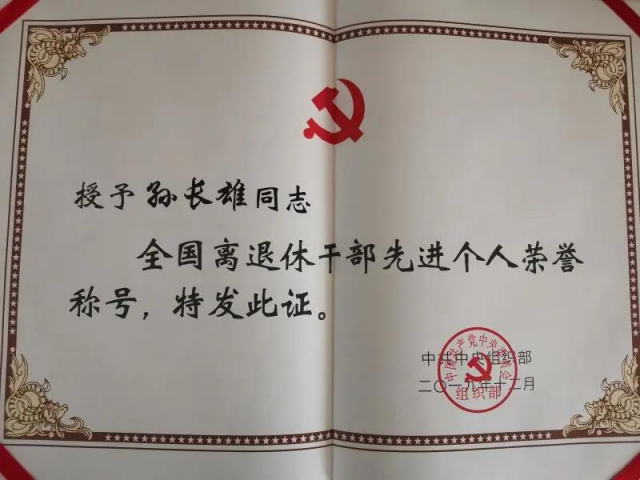 授予孙长雄同志
全国离退休干部先进个人荣誉
称号，特发此证。
中共中央组织部
二〇一九年十二月
中国共产党中央委员会
组织部